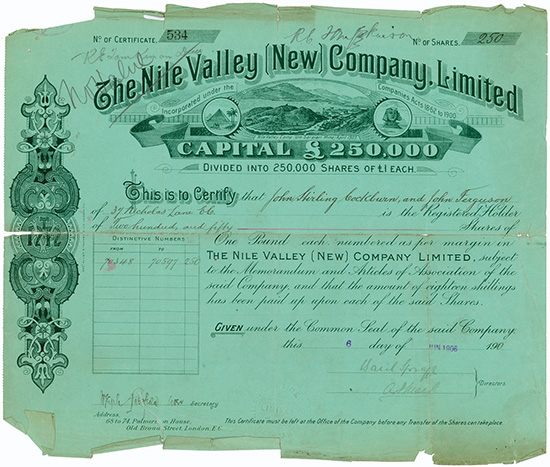 No. of Certificate. 534
No. of Shares. 250
The Nile Valley (New) Company, Limited
Incorporated under the Companies Acts 1862 to 1900.
CAPITAL £250,000
Divided into 250,000 Shares of £1 each.
This is to Certify that John Stirling Cockburn, and John Ferguson
of 37 Nicholas Lane E.C. is the Registered Holder
of Two hundred and fifty Shares of
Distinctive Numbers
From To
70348 70597 250
One Pound each, numbered as per margin in
The Nile Valley (New) Company Limited, subject
to the Memorandum and Articles of Association of the
said Company, and that the amount of eighteen shillings
has been paid up upon each of the said Shares.
Given under the Common Seal of the said Company,
this 6 day of JUN 1906 190
Directors
Secretary
Address.
65 to 74, Palmerston House,
Old Broad Street, London. E.C.
This Certificate must be left at the Office of the Company before any Transfer of the Shares can take place